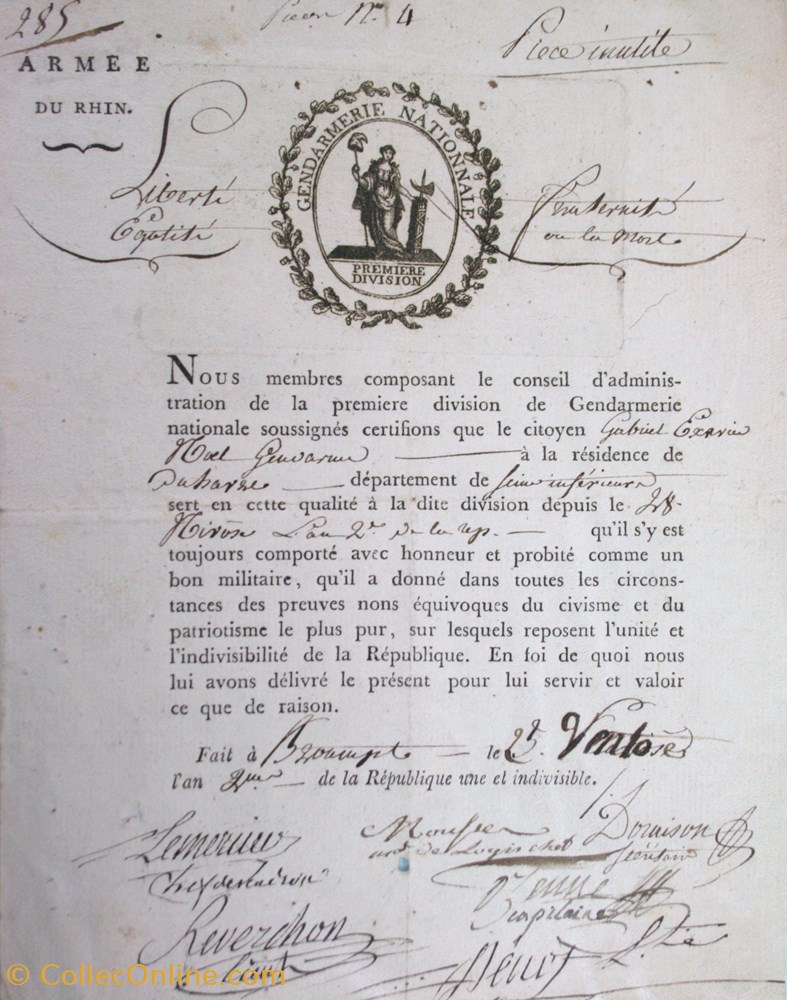 285
Nº 4
Piece inutile
ARMÉE
DU RHIN.
Liberté
Egalité
GENDARMERIE NATIONNALE
PREMIERE
DIVISION
Fraternité
ou la Mort
Nous membres composant le conseil d'adminis-
tration de la premiere division de Gendarmerie
nationale soussignés certifions que le citoyen Gabriel
Noel Gendarme à la résidence de
département de seine inférieure
sert en cette qualité à la dite division depuis le 28
Nivôse L'an 2e de la rep. qu'il s'y est
toujours comporté avec honneur et probité comme un
bon militaire, qu'il a donné dans toutes les circons-
tances des preuves nons équivoques du civisme et du
patriotisme le plus pur, sur lesquels reposent l'unité et
l'indivisibilité de la République. En foi de quoi nous
lui avons délivré le présent pour lui servir et valoir
ce que de raison.
Fait à le Ventose
l'an 2me de la République une et indivisible.
de Logis chef
capitaine
Reverchon
© CollecOnline.com